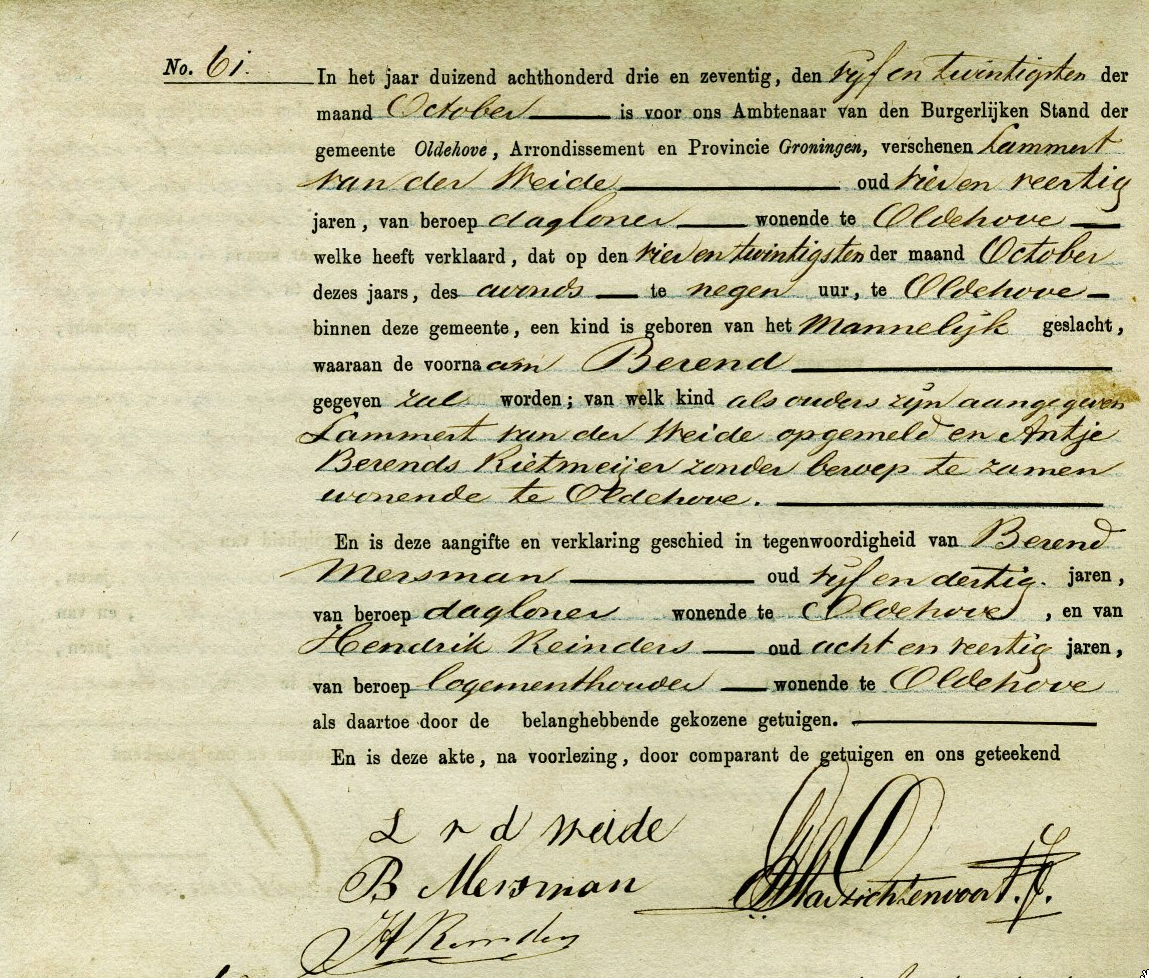 No. 61.
In het jaar duizend achthonderd drie en zeventig, den vyf en twintigsten der
maand October is voor ons Ambtenaar van den Burgerlijken Stand der
gemeente Oldehove, Arrondissement en Provincie Groningen, verschenen Lammert
van der Weide oud vier en veertig
jaren, van beroep dagloner wonende te Oldehove
welke heeft verklaard, dat op den vier en twintigsten der maand October
dezes jaars, des avonds te negen uur, te Oldehove
binnen deze gemeente, een kind is geboren van het Mannelijk geslacht,
waaraan de voornaam Berend
gegeven zal worden; van welk kind als ouders zijn aangegeven
Lammert van der Weide opgemeld en Antje
Berends Rietmeijer zonder beroep te zamen
wonende te Oldehove.
En is deze aangifte en verklaring geschied in tegenwoordigheid van Berend
Mersman oud vyf en dertig. jaren,
van beroep dagloner wonende te Oldehove, en van
Hendrik Reinders oud acht en veertig jaren,
van beroep logementhouder wonende te Oldehove
als daartoe door de belanghebbende gekozene getuigen.
En is deze akte, na voorlezing, door comparant de getuigen en ons geteekend
L v d Weide
B Mersman
H Reinders